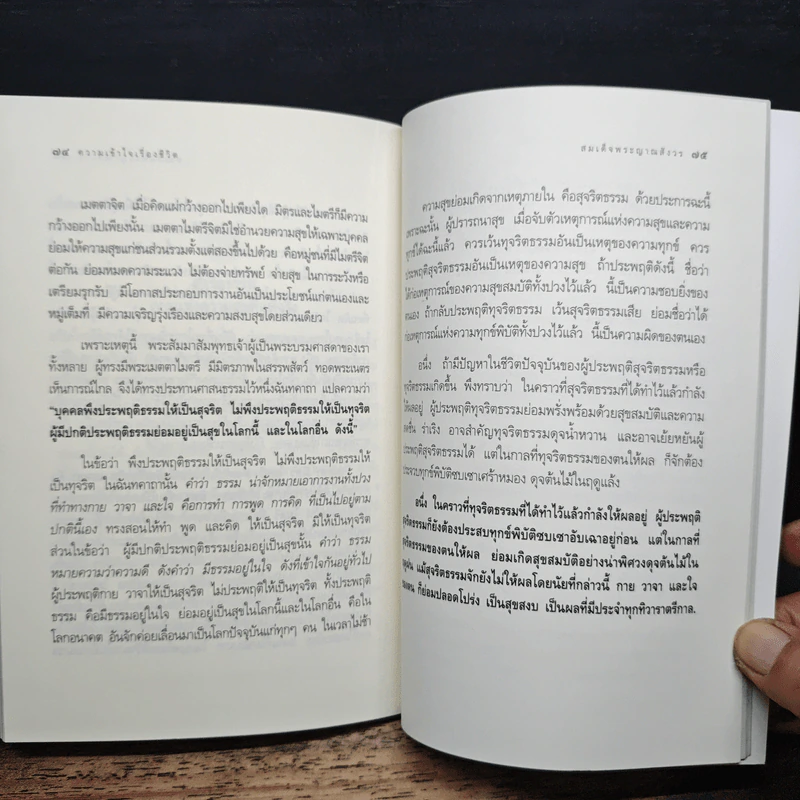 ๗๔ ความเข้าใจเรื่องชีวิต
เมตตาจิต เมื่อคิดแผ่กว้างออกไปเพียงใด มิตรและไมตรีก็มีความ
กว้างออกไปเพียงนั้น เมตตาไมตรีจิตมิใช่อำนวยความสุขให้เฉพาะบุคคล
ย่อมให้ความสุขแก่ชนส่วนรวมตั้งแต่สองขึ้นไปด้วย คือหมู่ชนที่มีไมตรีจิต
ต่อกัน ย่อมหมดความระแวง ไม่ต้องจ่ายทรัพย์ จ่ายสุข ในการระวังหรือ
เตรียมรุกรับ มีโอกาสประกอบการงานอันเป็นประโยชน์แก่ตนเองและ
หมู่เต็มที่ มีความเจริญรุ่งเรืองและความสงบสุขโดยส่วนเดียว
เพราะเหตุนี้ พระสัมมาสัมพุทธเจ้าผู้เป็นพระบรมศาสดาของเรา
ทั้งหลาย ผู้ทรงมีพระเมตตาไมตรี มีมิตรภาพในสรรพสัตว์ ทอดพระเนตร
เห็นการณ์ไกล จึงได้ทรงประทานศาสนธรรมไว้หนึ่งฉันทคาถา แปลความว่า
“บุคคลพึงประพฤติธรรมให้เป็นสุจริต ไม่พึงประพฤติธรรมให้เป็นทุจริต
ผู้มีปกติประพฤติธรรมย่อมอยู่เป็นสุขในโลกนี้ และในโลกอื่น ดังนี้”
ในข้อว่า พึงประพฤติธรรมให้เป็นสุจริต ไม่พึงประพฤติธรรมให้
เป็นทุจริต ในฉันทคาถานั้น คำว่า ธรรม น่าจักหมายเอาการงานทั้งปวง
ที่ทำทางกาย วาจา และใจ คือการทำ การพูด การคิด ที่เป็นไปอยู่ตาม
ปกตินี้เอง ทรงสอนให้ทำ พูด และคิด ให้เป็นสุจริต มิให้เป็นทุจริต
ส่วนในข้อว่า ผู้มีปกติประพฤติธรรมย่อมอยู่เป็นสุขนั้น คำว่า ธรรม
หมายความว่าความดี ดังคำว่า มีธรรมอยู่ในใจ ดังที่เข้าใจกันอยู่ทั่วไป
ผู้ประพฤติกาย วาจาให้เป็นสุจริต ไม่ประพฤติให้เป็นทุจริต ทั้งประพฤติ
ธรรม คือมีธรรมอยู่ในใจ ย่อมอยู่เป็นสุขในโลกนี้และในโลกอื่น คือใน
โลกอนาคต อันจักค่อยเลื่อนมาเป็นโลกปัจจุบันแก่ทุกๆ คน ในเวลาไม่ช้า
สมเด็จพระญาณสังวร ๗๕
ความสุขย่อมเกิดจากเหตุภายใน คือสุจริตธรรม ด้วยประการฉะนี้
เพราะฉะนั้น ผู้ปรารถนาสุข เมื่อจับตัวเหตุการณ์แห่งความสุขและความ
ทุกข์ได้ฉะนี้แล้ว ควรเว้นทุจริตธรรมอันเป็นเหตุของความทุกข์ ควร
ประพฤติสุจริตธรรมอันเป็นเหตุของความสุข ถ้าประพฤติดังนี้ ชื่อว่า
ได้ก่อเหตุการณ์ของความสุขสมบัติทั้งปวงไว้แล้ว นี้เป็นความชอบยิ่งของ
ตนเอง ถ้ากลับประพฤติทุจริตธรรม เว้นสุจริตธรรมเสีย ย่อมชื่อว่าได้
ก่อเหตุการณ์แห่งความทุกข์พิบัติทั้งปวงไว้แล้ว นี้เป็นความผิดของตนเอง
อนึ่ง ถ้ามีปัญหาในชีวิตปัจจุบันของผู้ประพฤติสุจริตธรรมหรือ
ทุจริตธรรมเกิดขึ้น พึงทราบว่า ในคราวที่สุจริตธรรมที่ได้ทำไว้แล้วกำลัง
ให้ผลอยู่ ผู้ประพฤติทุจริตธรรมย่อมพรั่งพร้อมด้วยสุขสมบัติและความ
สดชื่น ร่าเริง อาจสำคัญทุจริตธรรมดุจน้ำหวาน และอาจเย้ยหยันผู้
ประพฤติสุจริตธรรมได้ แต่ในกาลที่ทุจริตธรรมของตนให้ผล ก็จักต้อง
ประสบทุกข์พิบัติซบเซาเศร้าหมอง ดุจต้นไม้ในฤดูแล้ง
อนึ่ง ในคราวที่ทุจริตธรรมที่ได้ทำไว้แล้วกำลังให้ผลอยู่ ผู้ประพฤติ
สุจริตธรรมก็ยังต้องประสบทุกข์พิบัติซบเซาอับเฉาอยู่ก่อน แต่ในกาลที่
สุจริตธรรมของตนให้ผล ย่อมเกิดสุขสมบัติอย่างน่าพิศวงดุจต้นไม้ใน
ฤดูฝน แม้สุจริตธรรมจักยังไม่ให้ผลโดยนัยที่กล่าวนี้ กาย วาจา และใจ
ของตน ก็ย่อมปลอดโปร่ง เป็นสุขสงบ เป็นผลที่มีประจำทุกทิวาราตรีกาล.